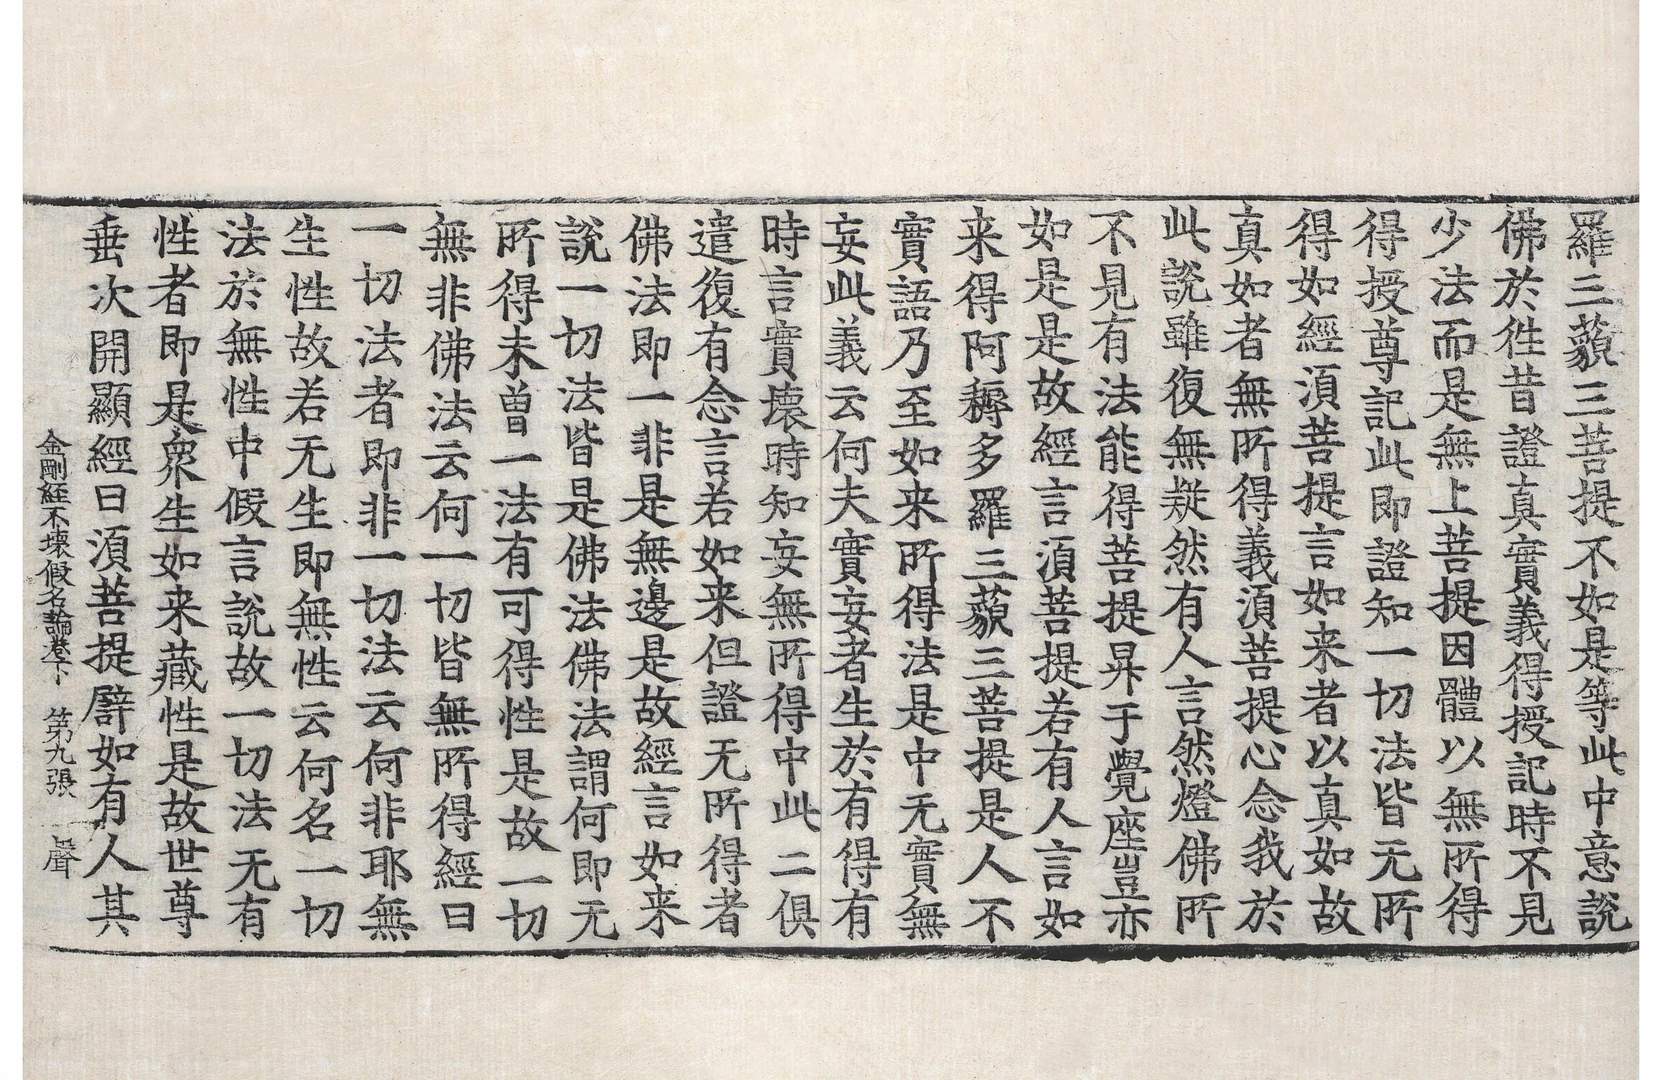 羅三藐三菩提不如是等此中意說
佛於徃昔證真實義得授記時不見
少法而是無上菩提因體以無所得
得授尊記此即證知一切法皆无所
得如經湏菩提言如来者以真如故
真如者無所得義湏菩提心念我於
此說雖復無疑然有人言然燈佛所
不見有法能得菩提昇于覺座豈亦
如是是故經言湏菩提若有人言如
来得阿耨多羅三藐三菩提是人不
實語乃至如来所得法是中无實無
妄此義云何夫實妄者生於有得有
時言實壞時知妄無所得中此二俱
遣復有念言若如来但證无所得者
佛法即一非是無邊是故經言如来
說一切法皆是佛法佛法謂何即无
所得未曾一法有可得性是故一切
無非佛法云何一切皆無所得經曰
一切法者即非一切法云何非耶無
生性故若无生即無性云何名一切
法於無性中假言說故一切法无有
性者即是衆生如来藏性是故世尊
垂次開顯經曰湏菩提譬如有人其
金剛經不壞假名論卷下 第九張 聲